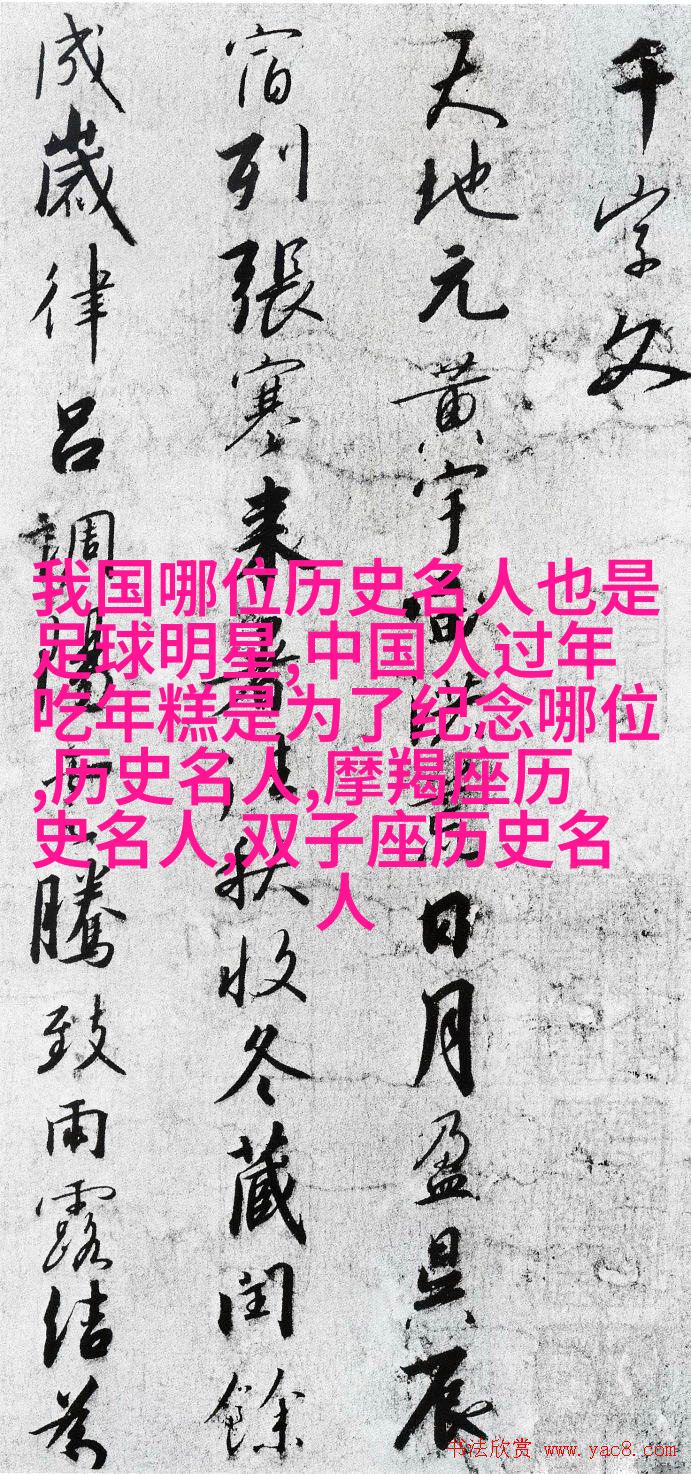 千字文
天地元黄宇
日月盈昃辰
宿列張寒来暑
秋收冬蔵閏餘
成歳律吕調陽
騰致雨露結為
我国哪位历史名人也是
足球明星,中国人过年
吃年糕是为了纪念哪位
,历史名人,摩羯座历
史名人,双子座历史名
人
书法欣赏 www.yac8.com